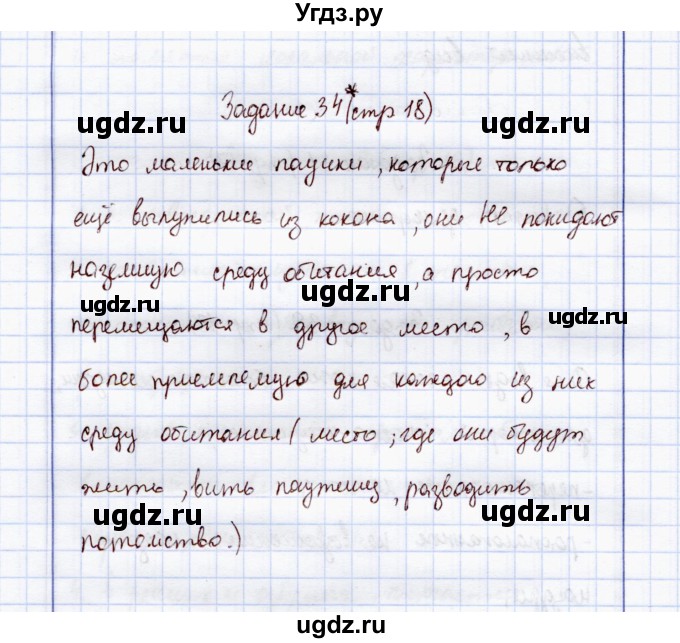 Угдз.ру
Задание 34* (стр 18)
ugdz.ru ugdz.ru
Это маленькие паучки, которые только
ещё вылупились из кокона, они не покидают
наземную среду обитания, а просто
ugdz.ru ugdz.ru ugdz.ru
перемещаются в другое место, в
более приемлемую для каждого из них
среду обитания (место, где они будут
жить, вить паутину, разводить
ugdz.ru ugdz.ru
потомство.)
ugdz.ru ugdz.ru